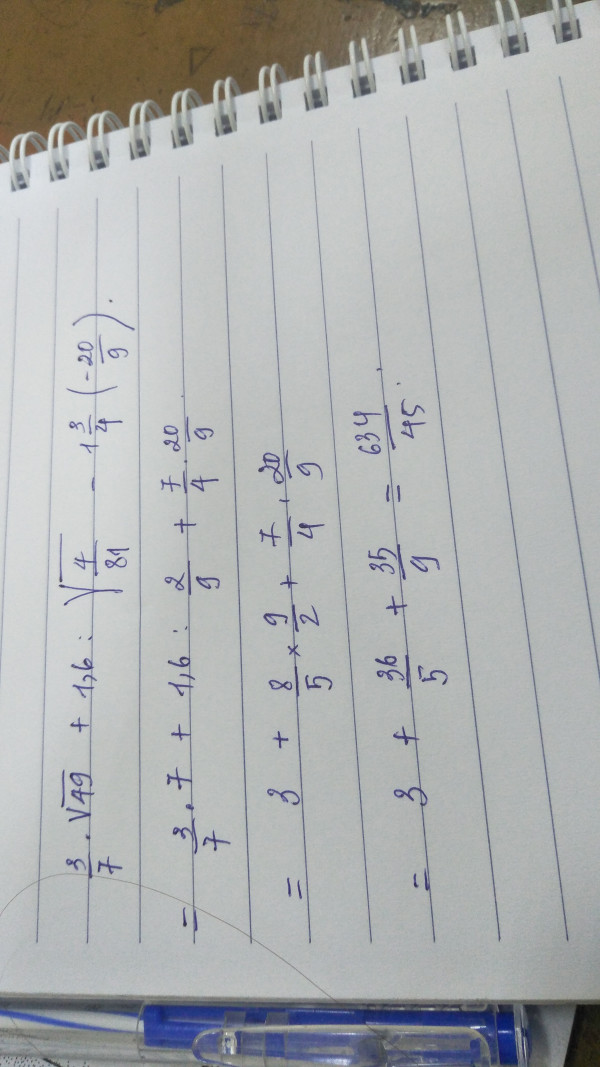 3/7 . √49 + 1,6 : √(4/81) - 1 3/4 (-20/9).
= 3/7 . 7 + 1,6 : 2/9 + 7/4 . 20/9 .
= 3 + 8/5 × 9/2 + 7/4 . 20/9
= 3 + 36/5 + 35/9 = 634/45 .